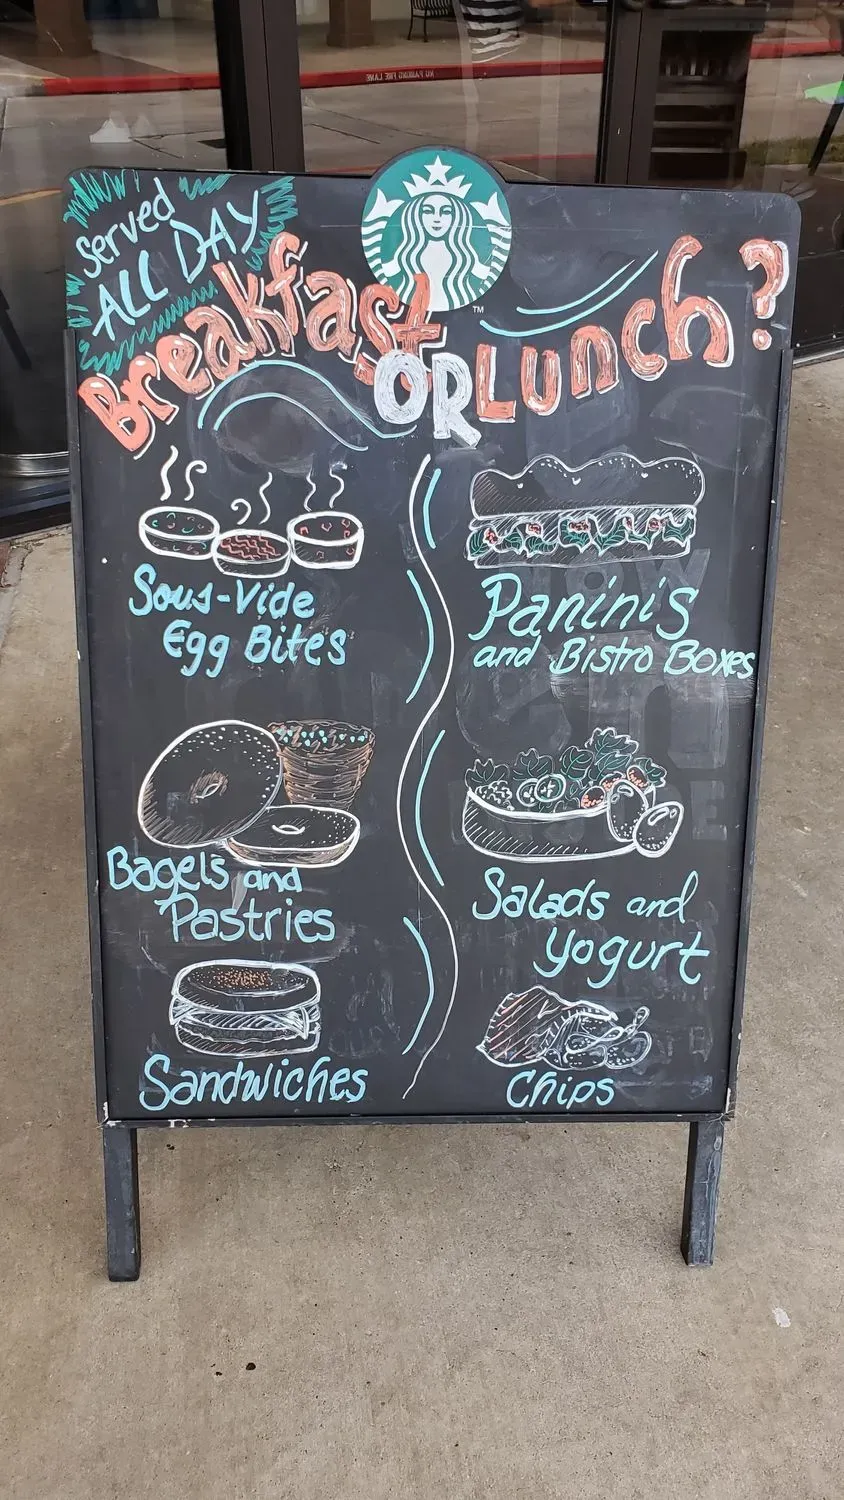 NO PARKING FIRE LANE
Served
ALL DAY
Breakfast OR Lunch?
TM
Sous-Vide
Egg Bites
Panini's
and Bistro Boxes
Bagels and
Pastries
Salads and
Yogurt
Sandwiches
Chips